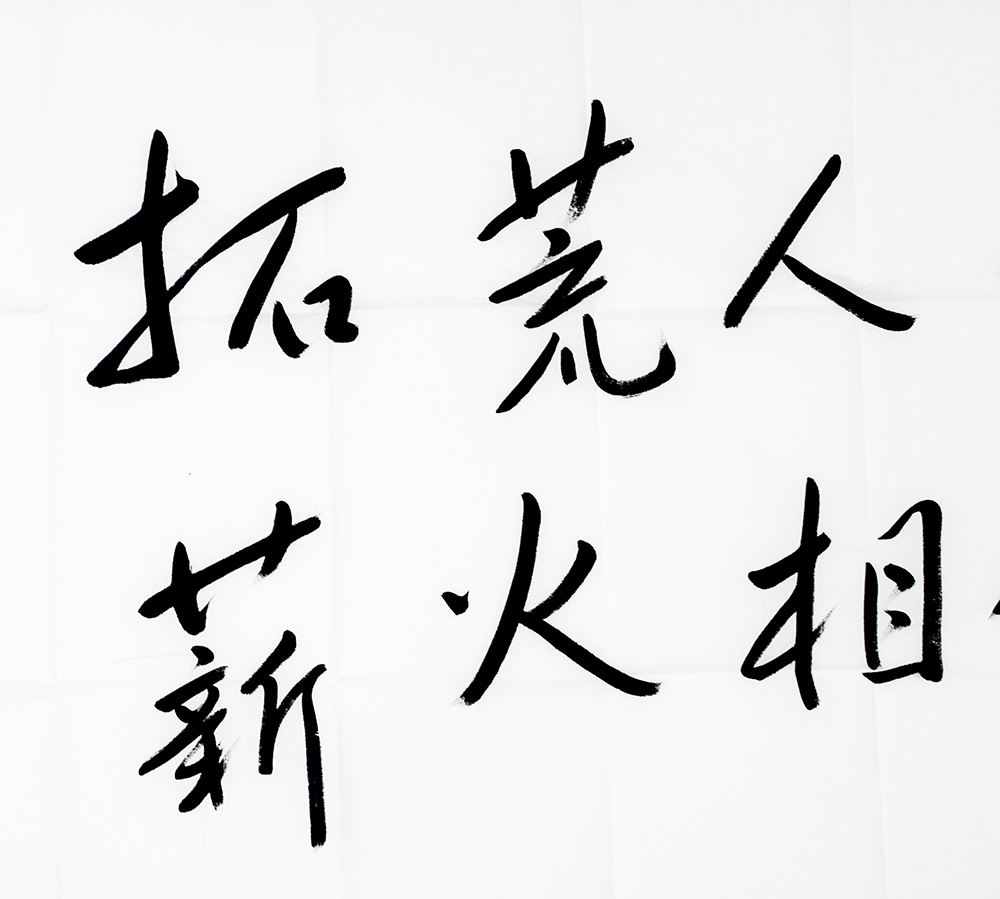 拓荒人
薪火相